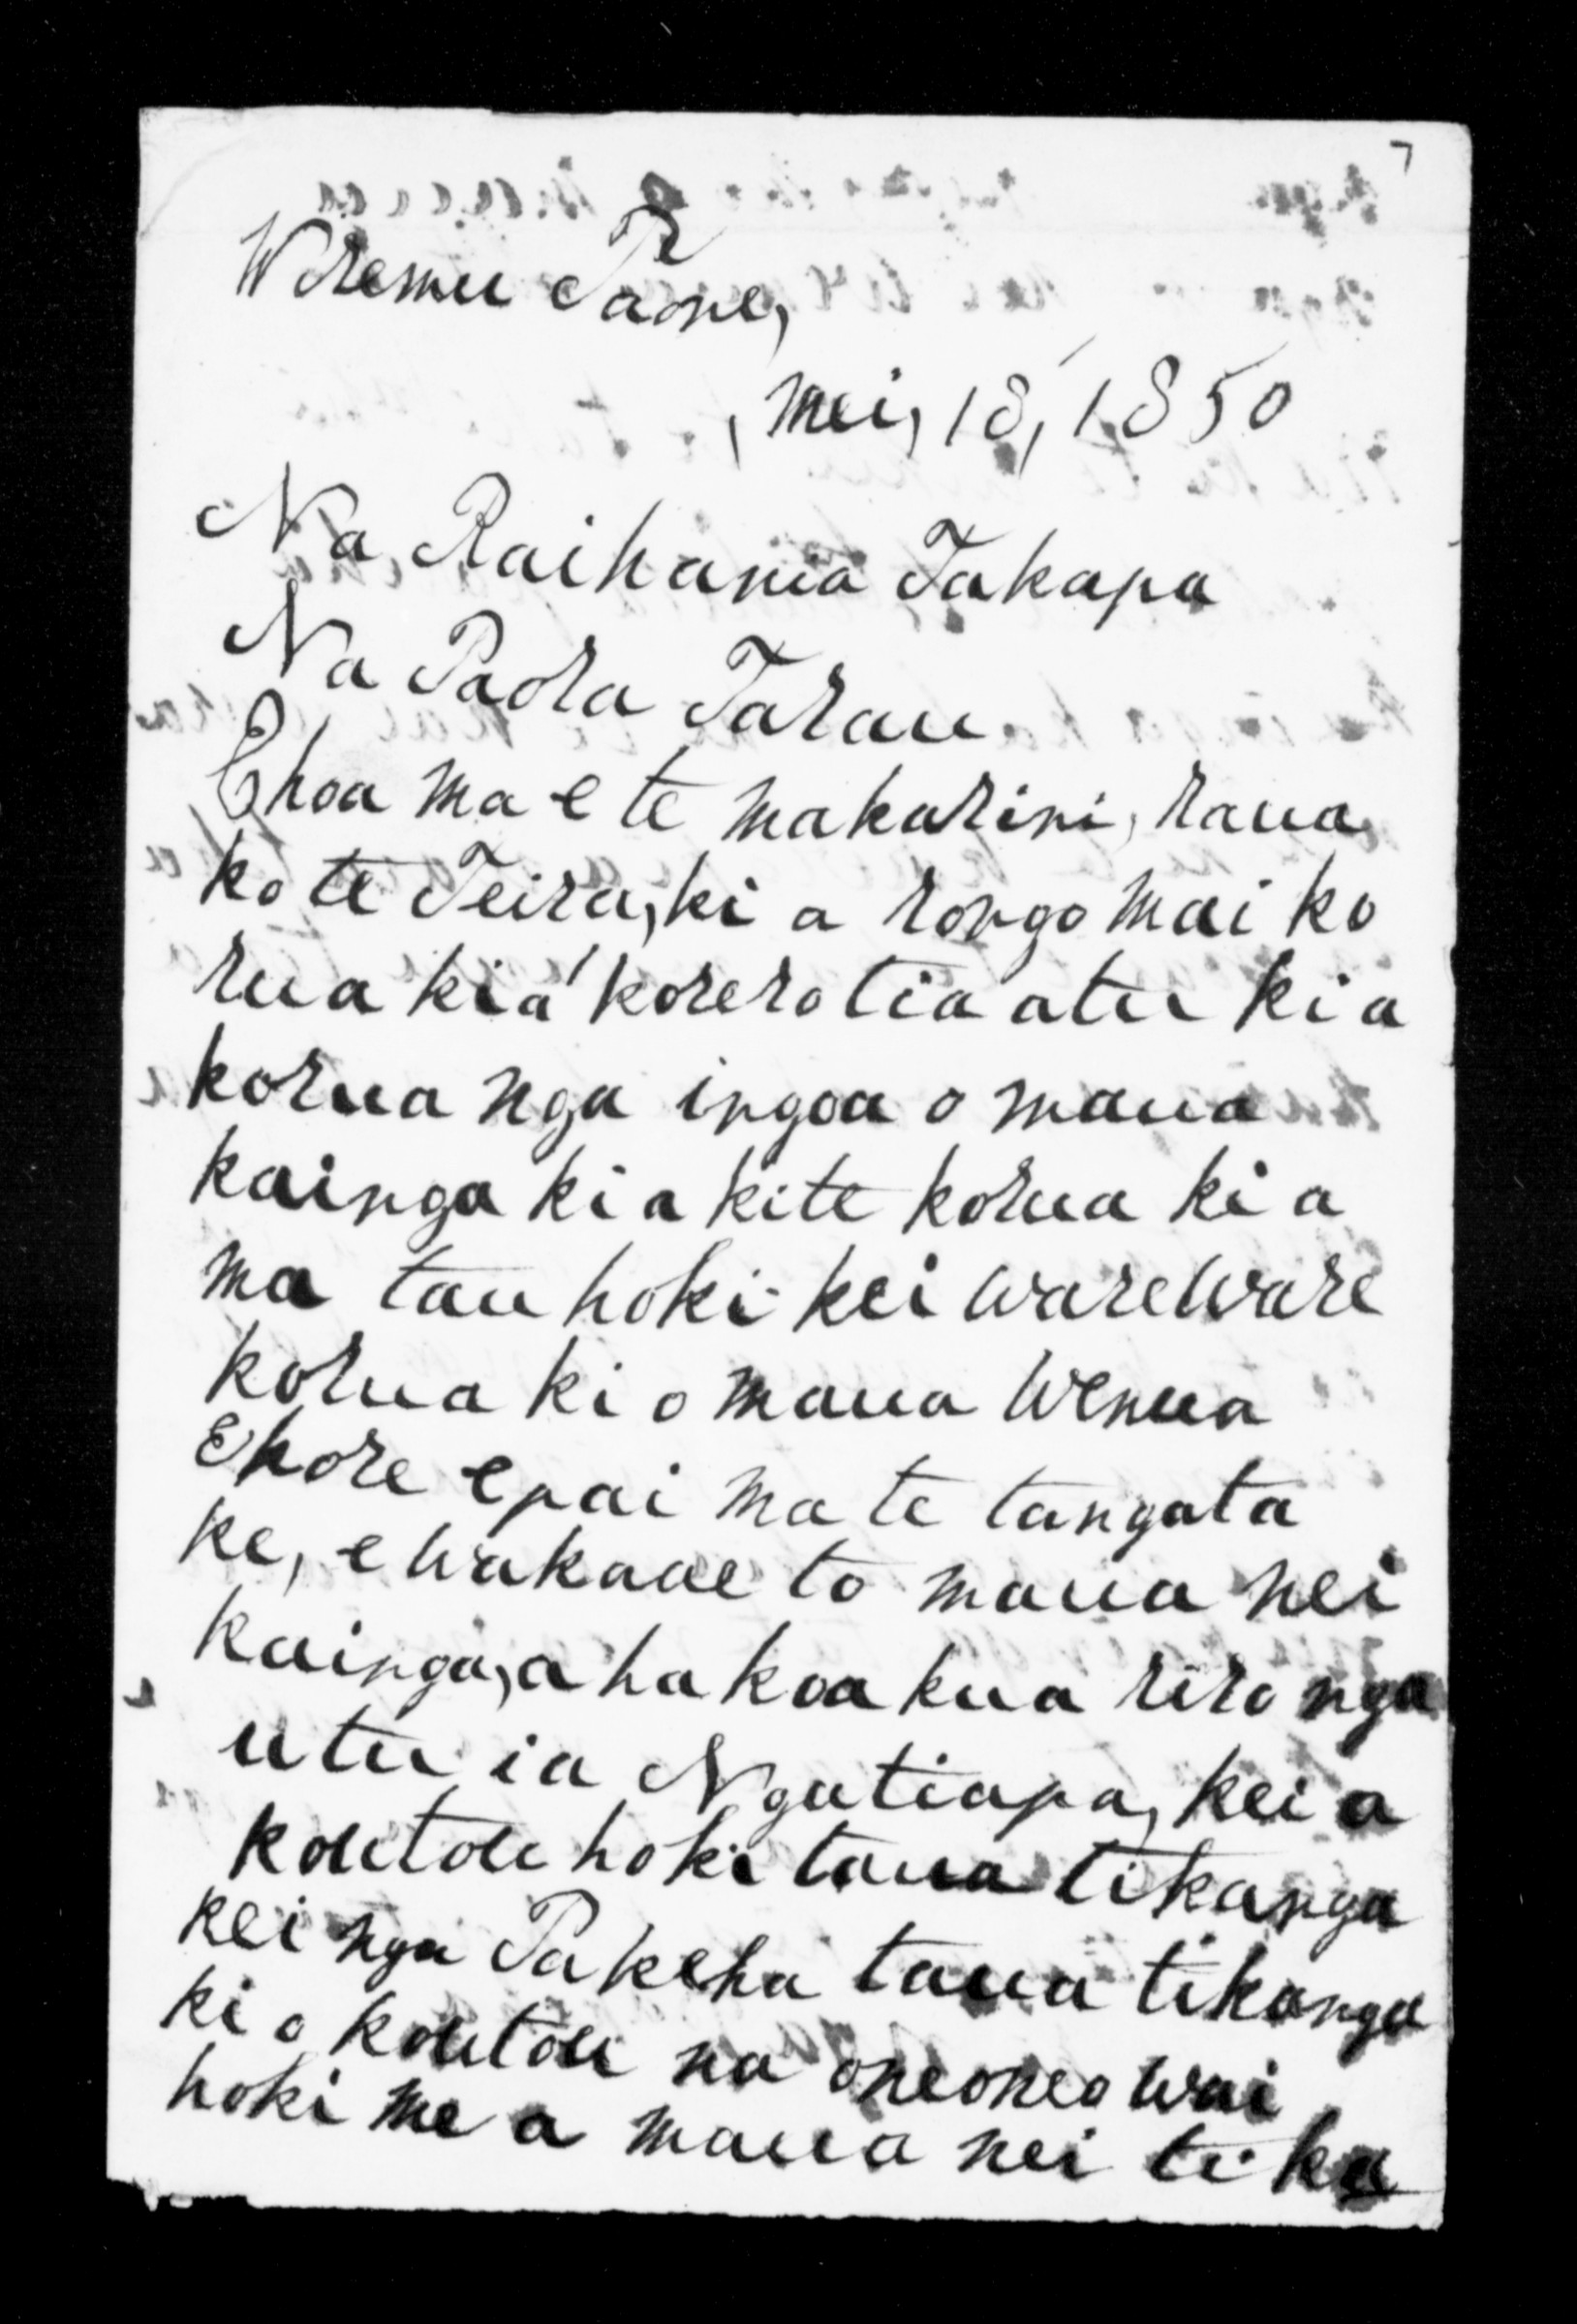 7
Wiremu Taone,
, mei, 18, 1850
Na, Raihania Takapa
Na Paora Tarau
Ehoa ma e te makarini, raua
ko te Teira, ki a rongo mai ko
rua kia korero tia atu ki a
korua nga ingoa o maua
kainga ki a kite korua ki a
ma tau hoki kei wareware
korua ki o maua Wenua
Ekore epai ma te tangata
ke, e wakaae to maua nei
kainga, a ha koa kua riro nga
utu ia Ngatiapa, kei a
koutou hoki taua tikanga
kei nga Pakeha taua tikanga
ki o koutou na oneone o wai
hoki me a maua nei tika